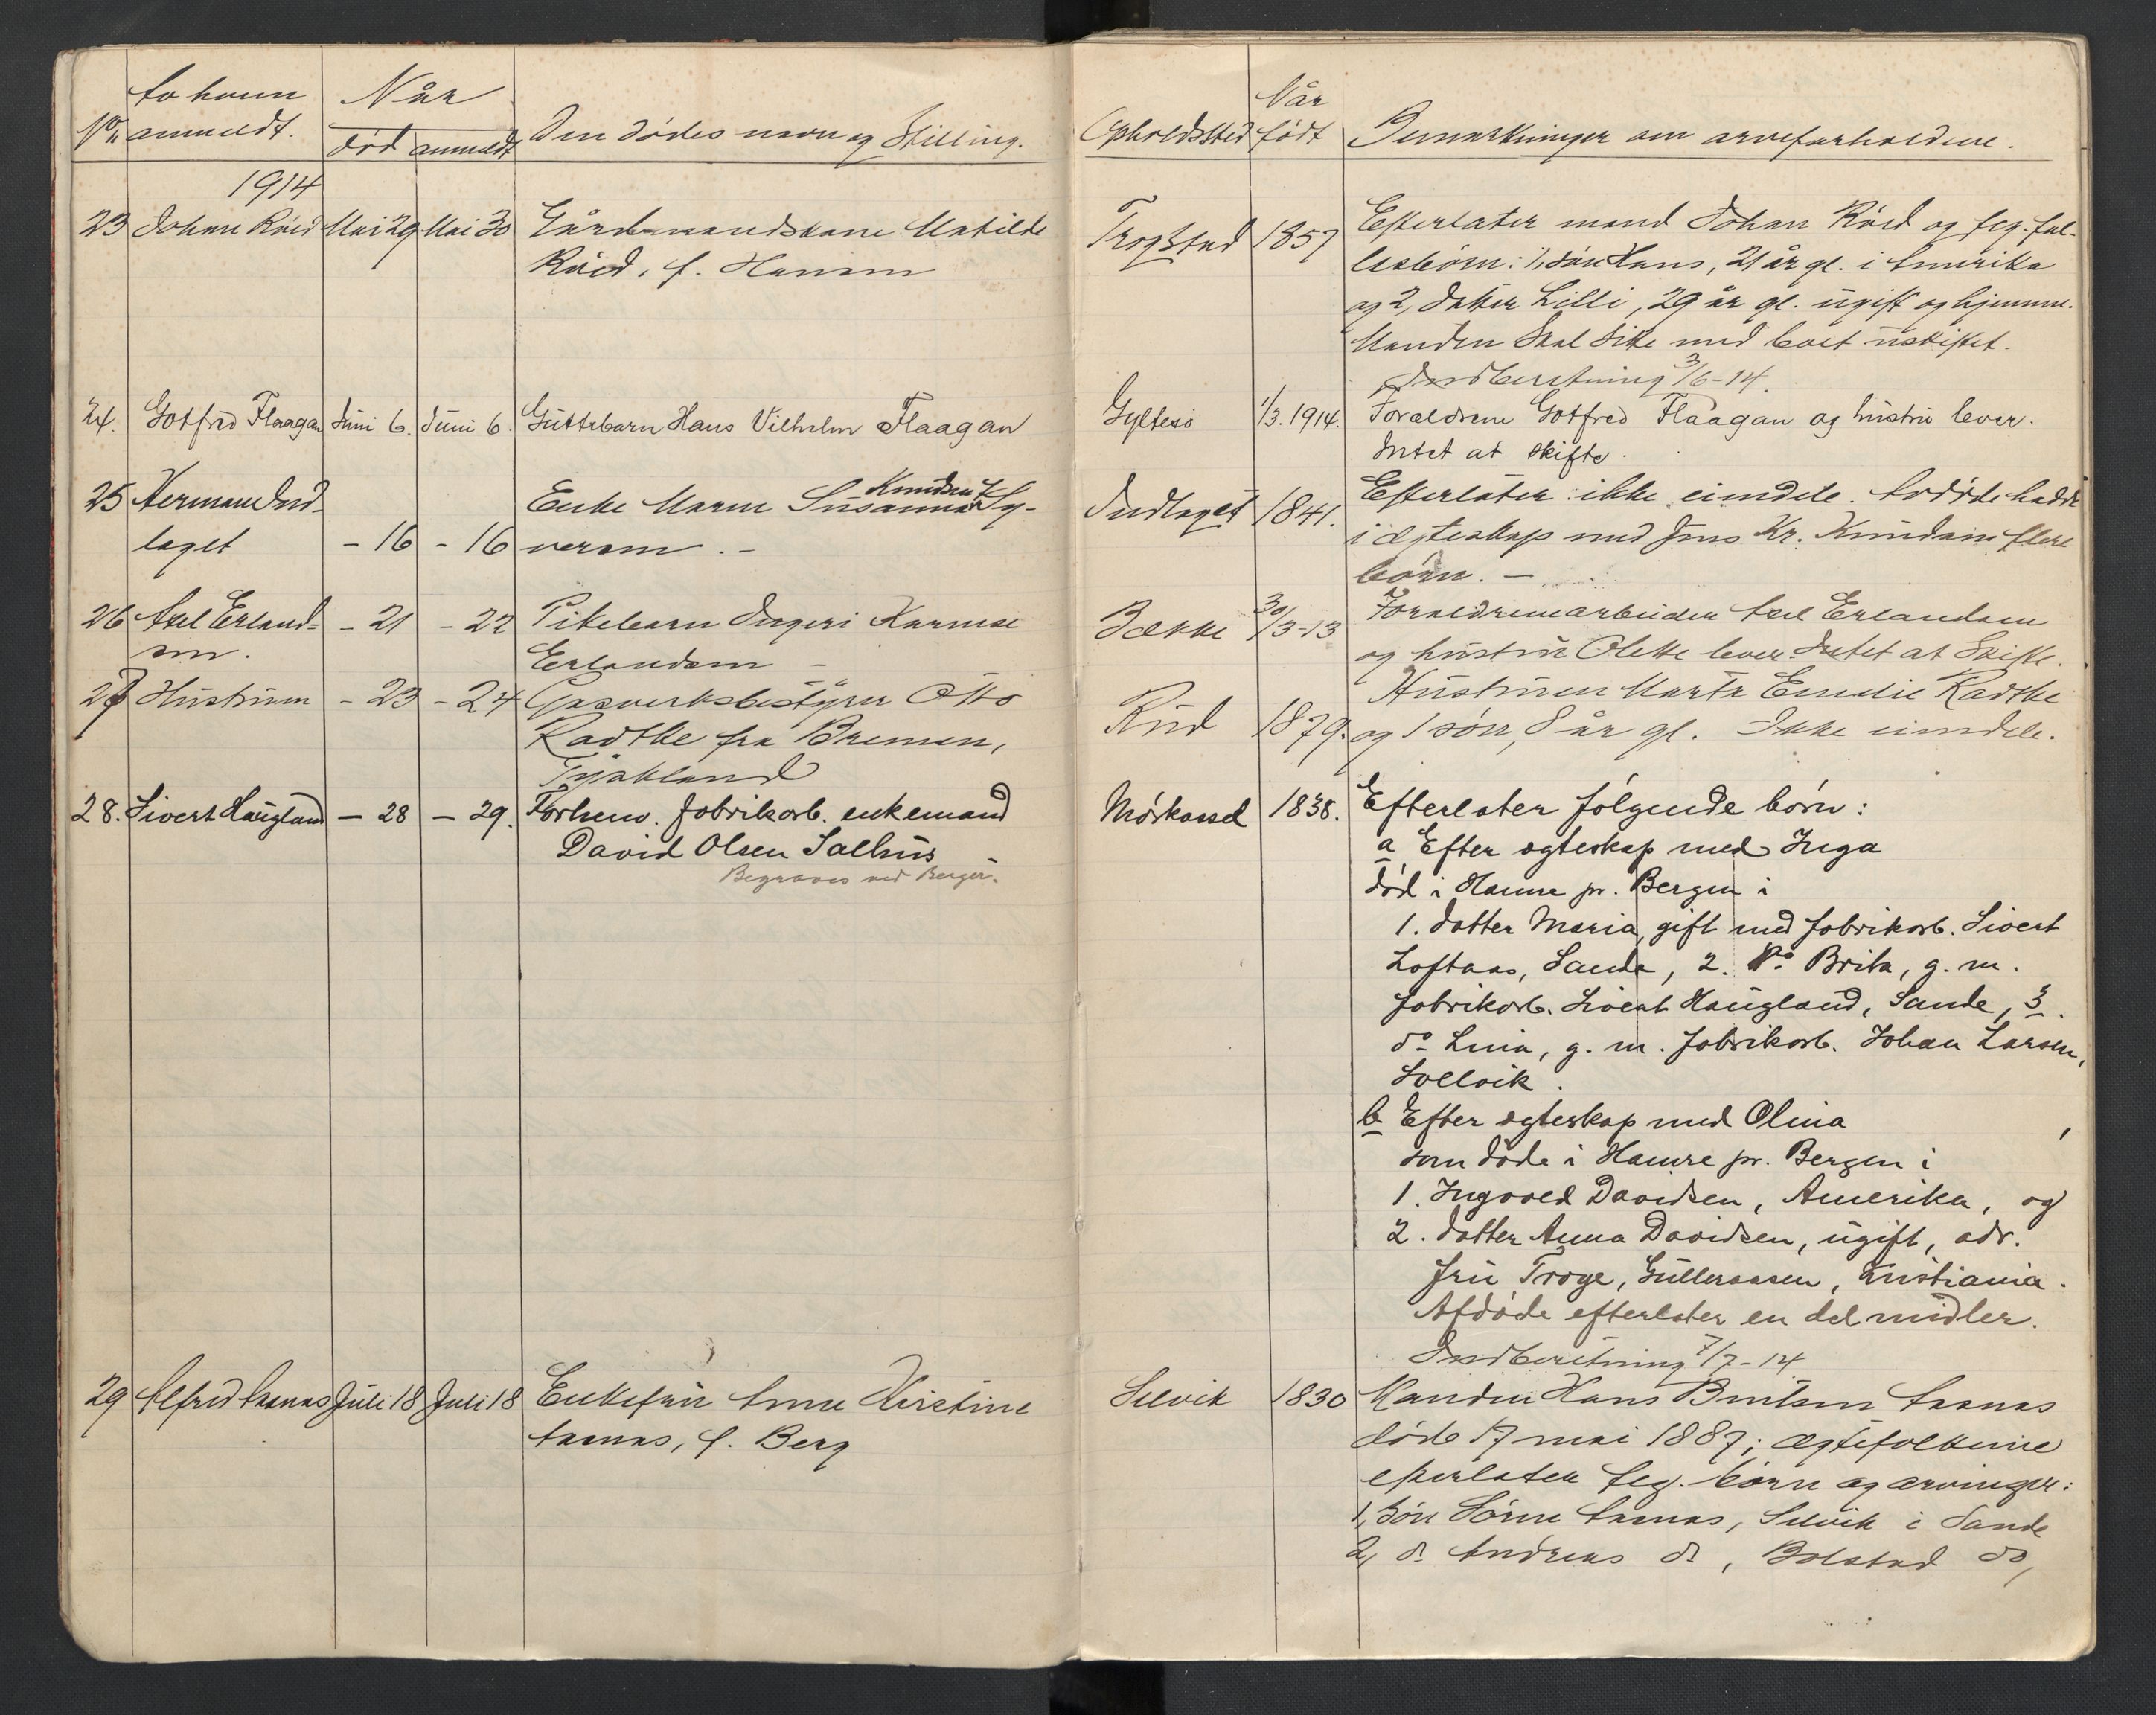 Nr
av hvem
anmeldt.
Når
død anmeldt
Den dødes navn og Stilling.
Opholdssted
Når
født
Bemerkninger om arveforholdene.
1914
23 Johan Röed Mai 29 Mai 30 Gårdmandskone Matilde
Röed, f. Hansen
Trogstad 1857 Efterlater mand Johan Röed og flg. fæl-
lesbörn: 1, sön Hans, 21 år gl. i Amerika
og 2, datter Lilli, 29 år gl. ugift og hjemme.
Manden skal sitte med boet uskiftet.
Indberetning 3/6-14.
24. Gotfred Flaagan Juni 6. Juni 6. Guttebarn Hans Vilhelm Flaagan
1/3. 1914. Forældrene Gotfred Flaagan og hustru lever.
Intet at skifte.
25 Herman Ind-
laget - 16 - 16
Enke Maren Susanna Knudsen f. Sy-
versen. -
Indlaget 1841. Efterlater ikke eiendele. Avdöde hadde
i ægteskap med Jens Kr. Knudsen flere
börn. -
26 Axel Erland-
sen. - 21 - 22 Pikebarn Ingeri Karense
Erlandsen -
Bække 30/3-13 Forældrene arbeider Axel Erlandsen
og hustru Olette lever. Intet at Skifte.
27 Hustruen - 23 - 24 Gasverksbestyrer Otto
Radtke fra Bremen,
Tyskland
Rud 1879. Hustruen Marta Emelie Radtke
og 1 sön, 8 år gl. Ikke eiendele.
28. Sivert Haugland - 28 - 29. Forhenv. fabrikarb. enkemand
David Olsen Salhus
Begraves ved Bergen.
Mörkassel 1838. Efterlater fölgende börn:
a Efter egteskap med Inga
död i Hamre pr. Bergen i
1. datter Maria, gift med fabrikarb. Sivert
Loftaas, Sande, 2. do Brita, g. m.
fabrikarb. Sivert Haugland, Sande, 3.
do Lina, g. m. fabrikarb. Johan Larsen,
Sollvik.
b Efter egteskap med Olina ,
som döde i Hamre pr. Bergen i
1. Ingvald Davidsen, Amerika, og
2. datter Anna Davidsen, ugift, adr.
fru Troye, Gulleraasen, Kristiania.
Afdöde efterlater en del midler.
Indberetning 7/7-14
29 Alfred Aasnas Juli 18 Juli 18 Enkefru Anne Kirstine
Aasnas, f. Berg
Selvik 1830 Manden Hans Berntsen Aasnas
döde 17 mai 1887; ægtefolkene
efterlater flg. börn og arvinger:
1, sön Sörne Aasnas, Selvik i Sande
2, do Andreas do, Bolstad do,